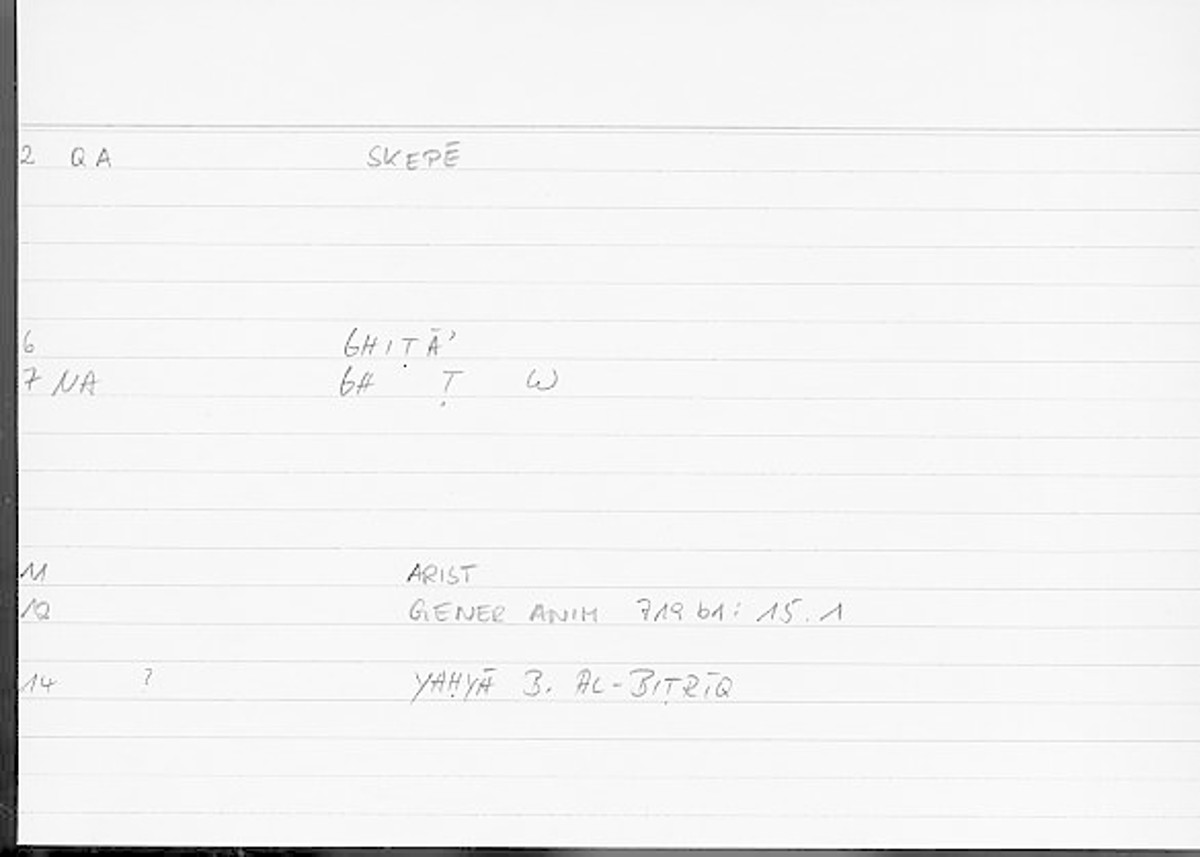 2 QA SKEPĒ
6 GHIṬĀ’
7 NA GH Ṭ W
11 ARIST
12 GENER ANIM 719 b1 : 15.1
14 ? YAḤYĀ B. AL-BIṬRĪQ